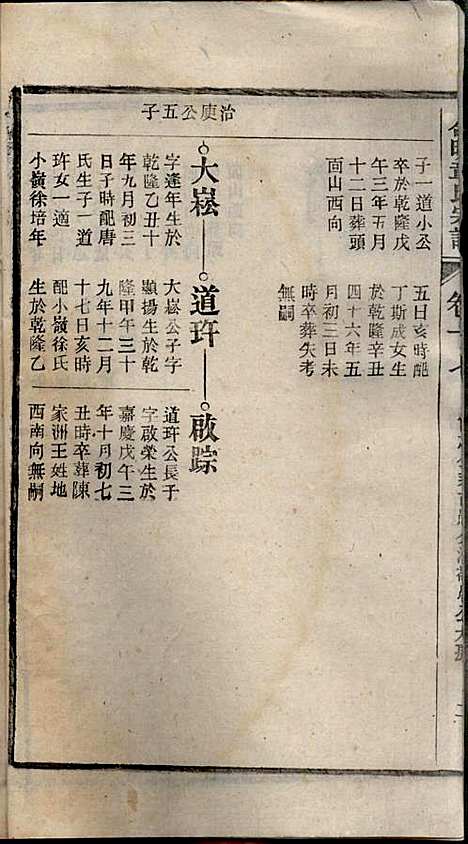 章氏宗譜
卷十七
子一道小公
卒於乾隆戊
午三年五月
十二日葬頭
面山西向
五日亥時配
丁斯成女生
於乾隆辛丑
四十六年五
月初三日未
時卒葬失考
無嗣
治庾公五子
大崧
道玝
啟踪
字逢年生於
乾隆乙丑十
年九月初三
日子時配唐
氏生子一道
玝女一適
小嶺徐培年
大崧公子字
顯揚生於乾
隆甲午三十
九年十二月
十七日亥時
配小嶺徐氏
生於乾隆乙
道玝公長子
字啟榮生於
嘉慶戊午三
年十月初七
丑時卒葬陳
家洲王姓地
西南向無嗣